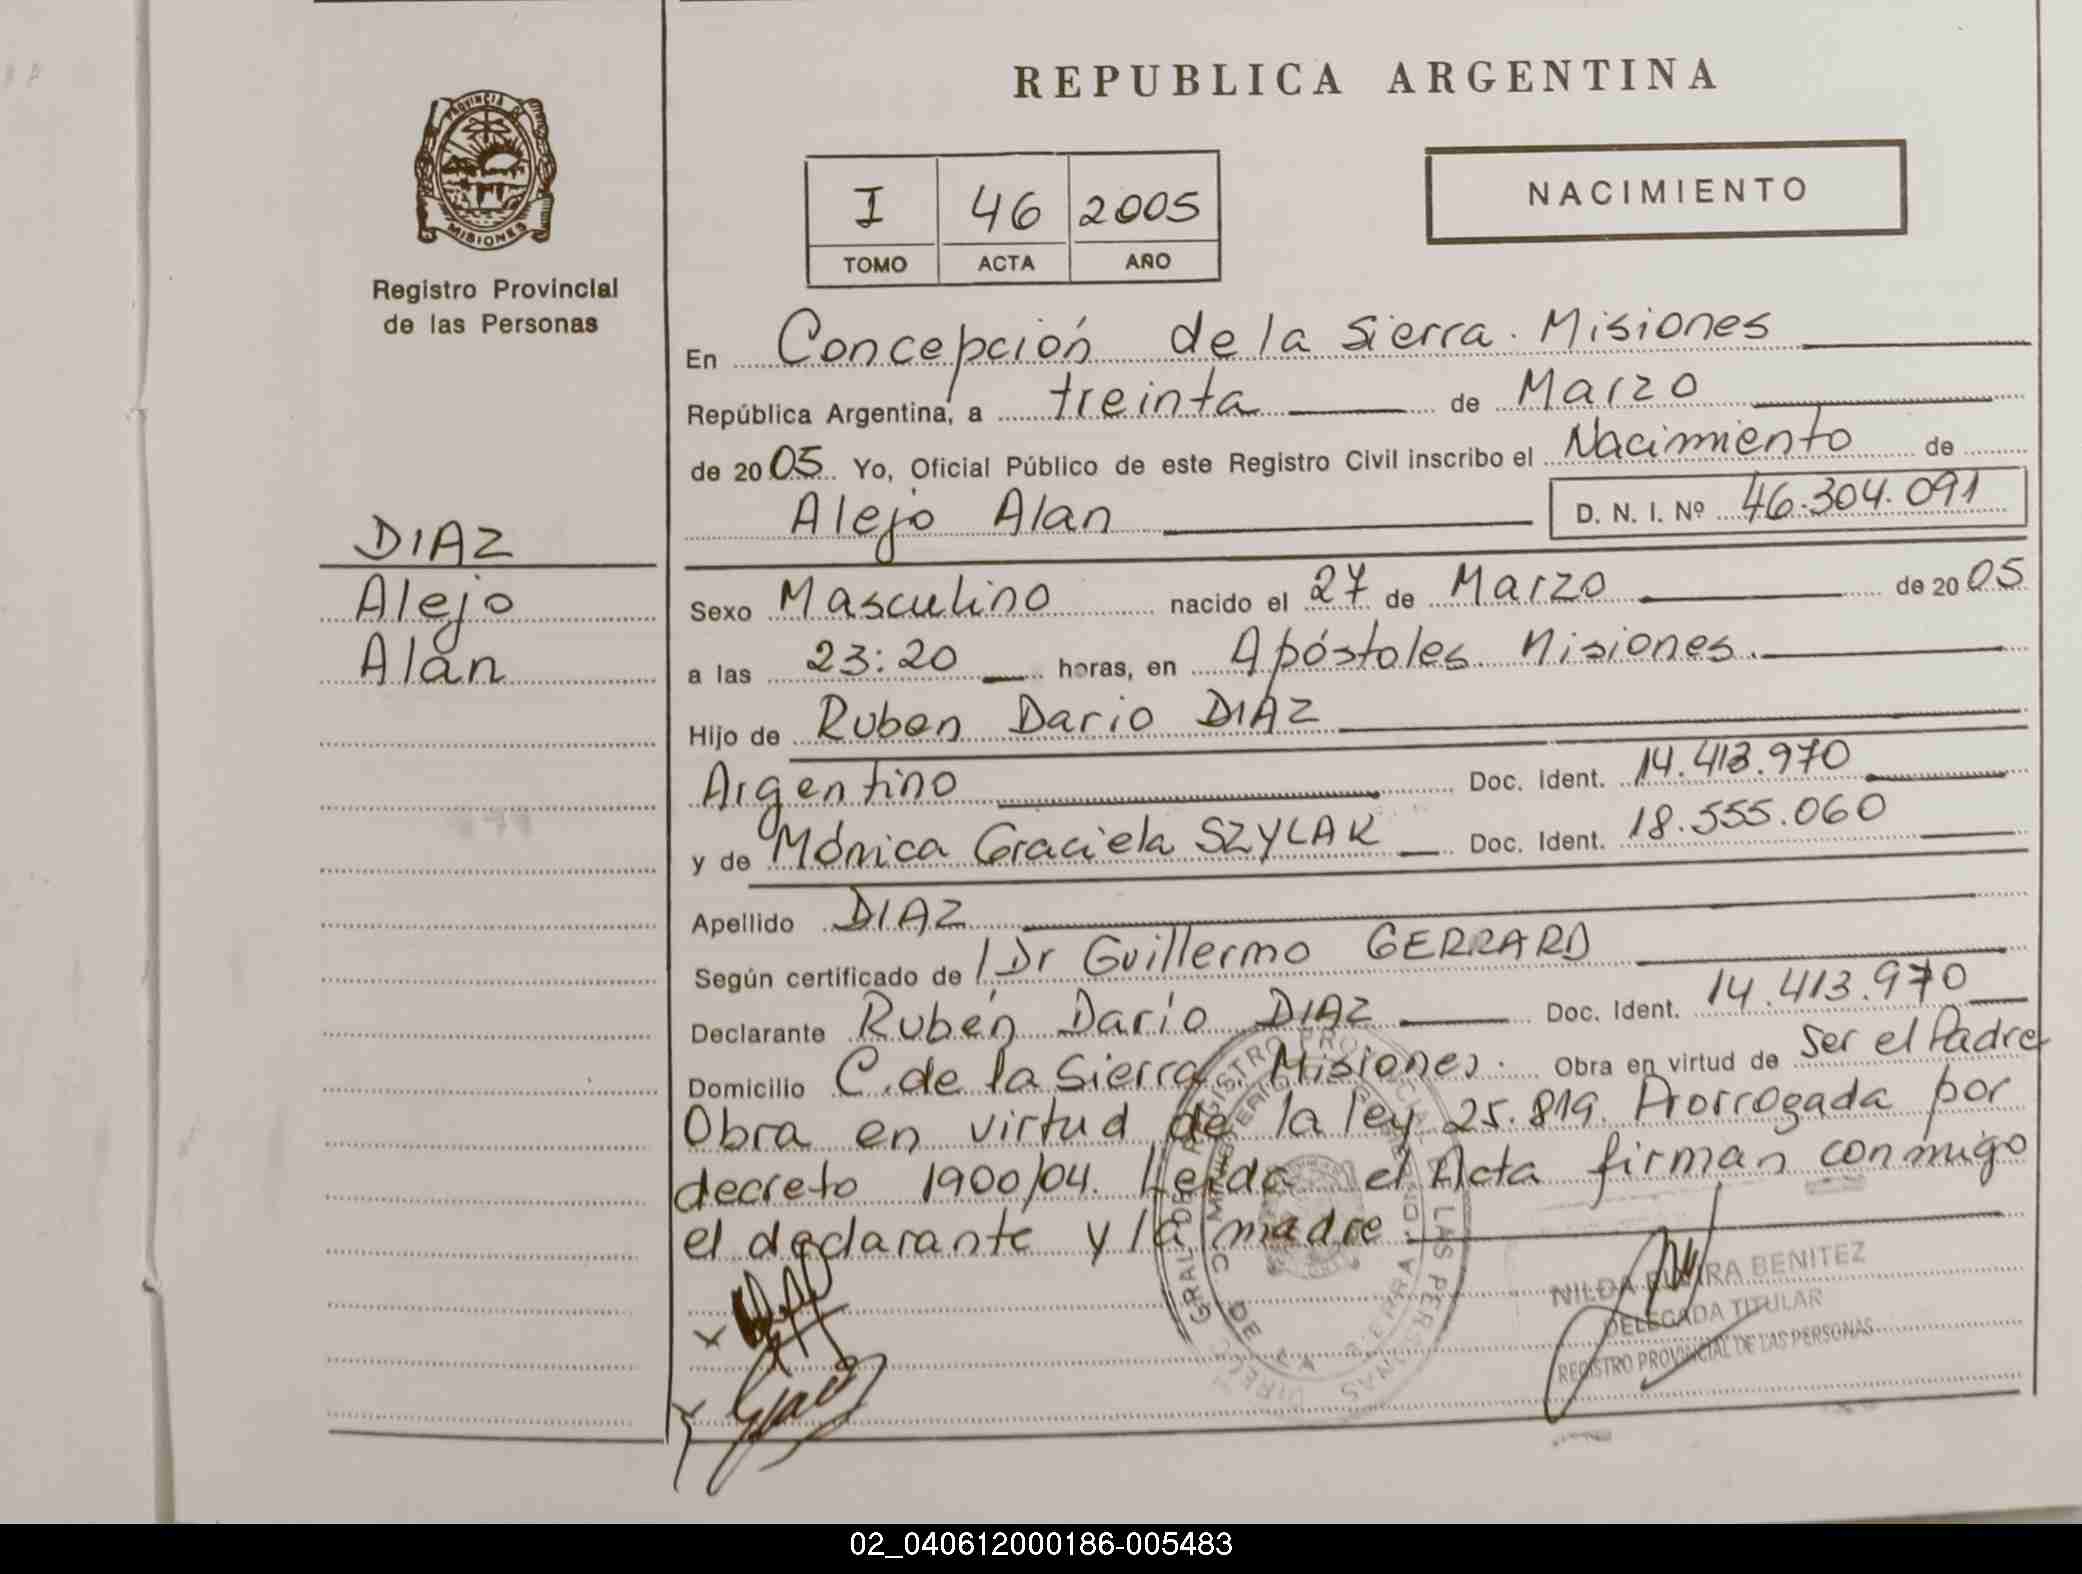 REPUBLICA ARGENTINA
PROVINCIA DE
MISIONES
Registro Provincial
de las Personas
I 46 2005
TOMO ACTA AÑO
NACIMIENTO
En Concepción de la Sierra. Misiones
República Argentina, a treinta de Marzo
de 2005 Yo, Oficial Público de este Registro Civil inscribo el Nacimiento de
Alejo Alan D. N. I. Nº 46.304.091
DIAZ
Alejo
Alan
Sexo Masculino nacido el 27 de Marzo de 2005
a las 23:20 horas, en Apóstoles. Misiones.
Hijo de Ruben Dario DIAZ
Argentino Doc. Ident. 14.413.970
y de Mónica Graciela SZYLAK Doc. Ident. 18.555.060
Apellido DIAZ
Según certificado de Dr Guillermo GERRARD
Declarante Rubén Darío DIAZ Doc. Ident. 14.413.970
Domicilio C. de la Sierra. Misiones. Obra en virtud de Ser el Padre
Obra en virtud de la ley 25.819. Prorrogada por
decreto 1900/04. Leida el Acta firman conmigo
el declarante y la madre
NILDA ELVIRA BENITEZ
DELEGADA TITULAR
REGISTRO PROVINCIAL DE LAS PERSONAS
02_040612000186-005483